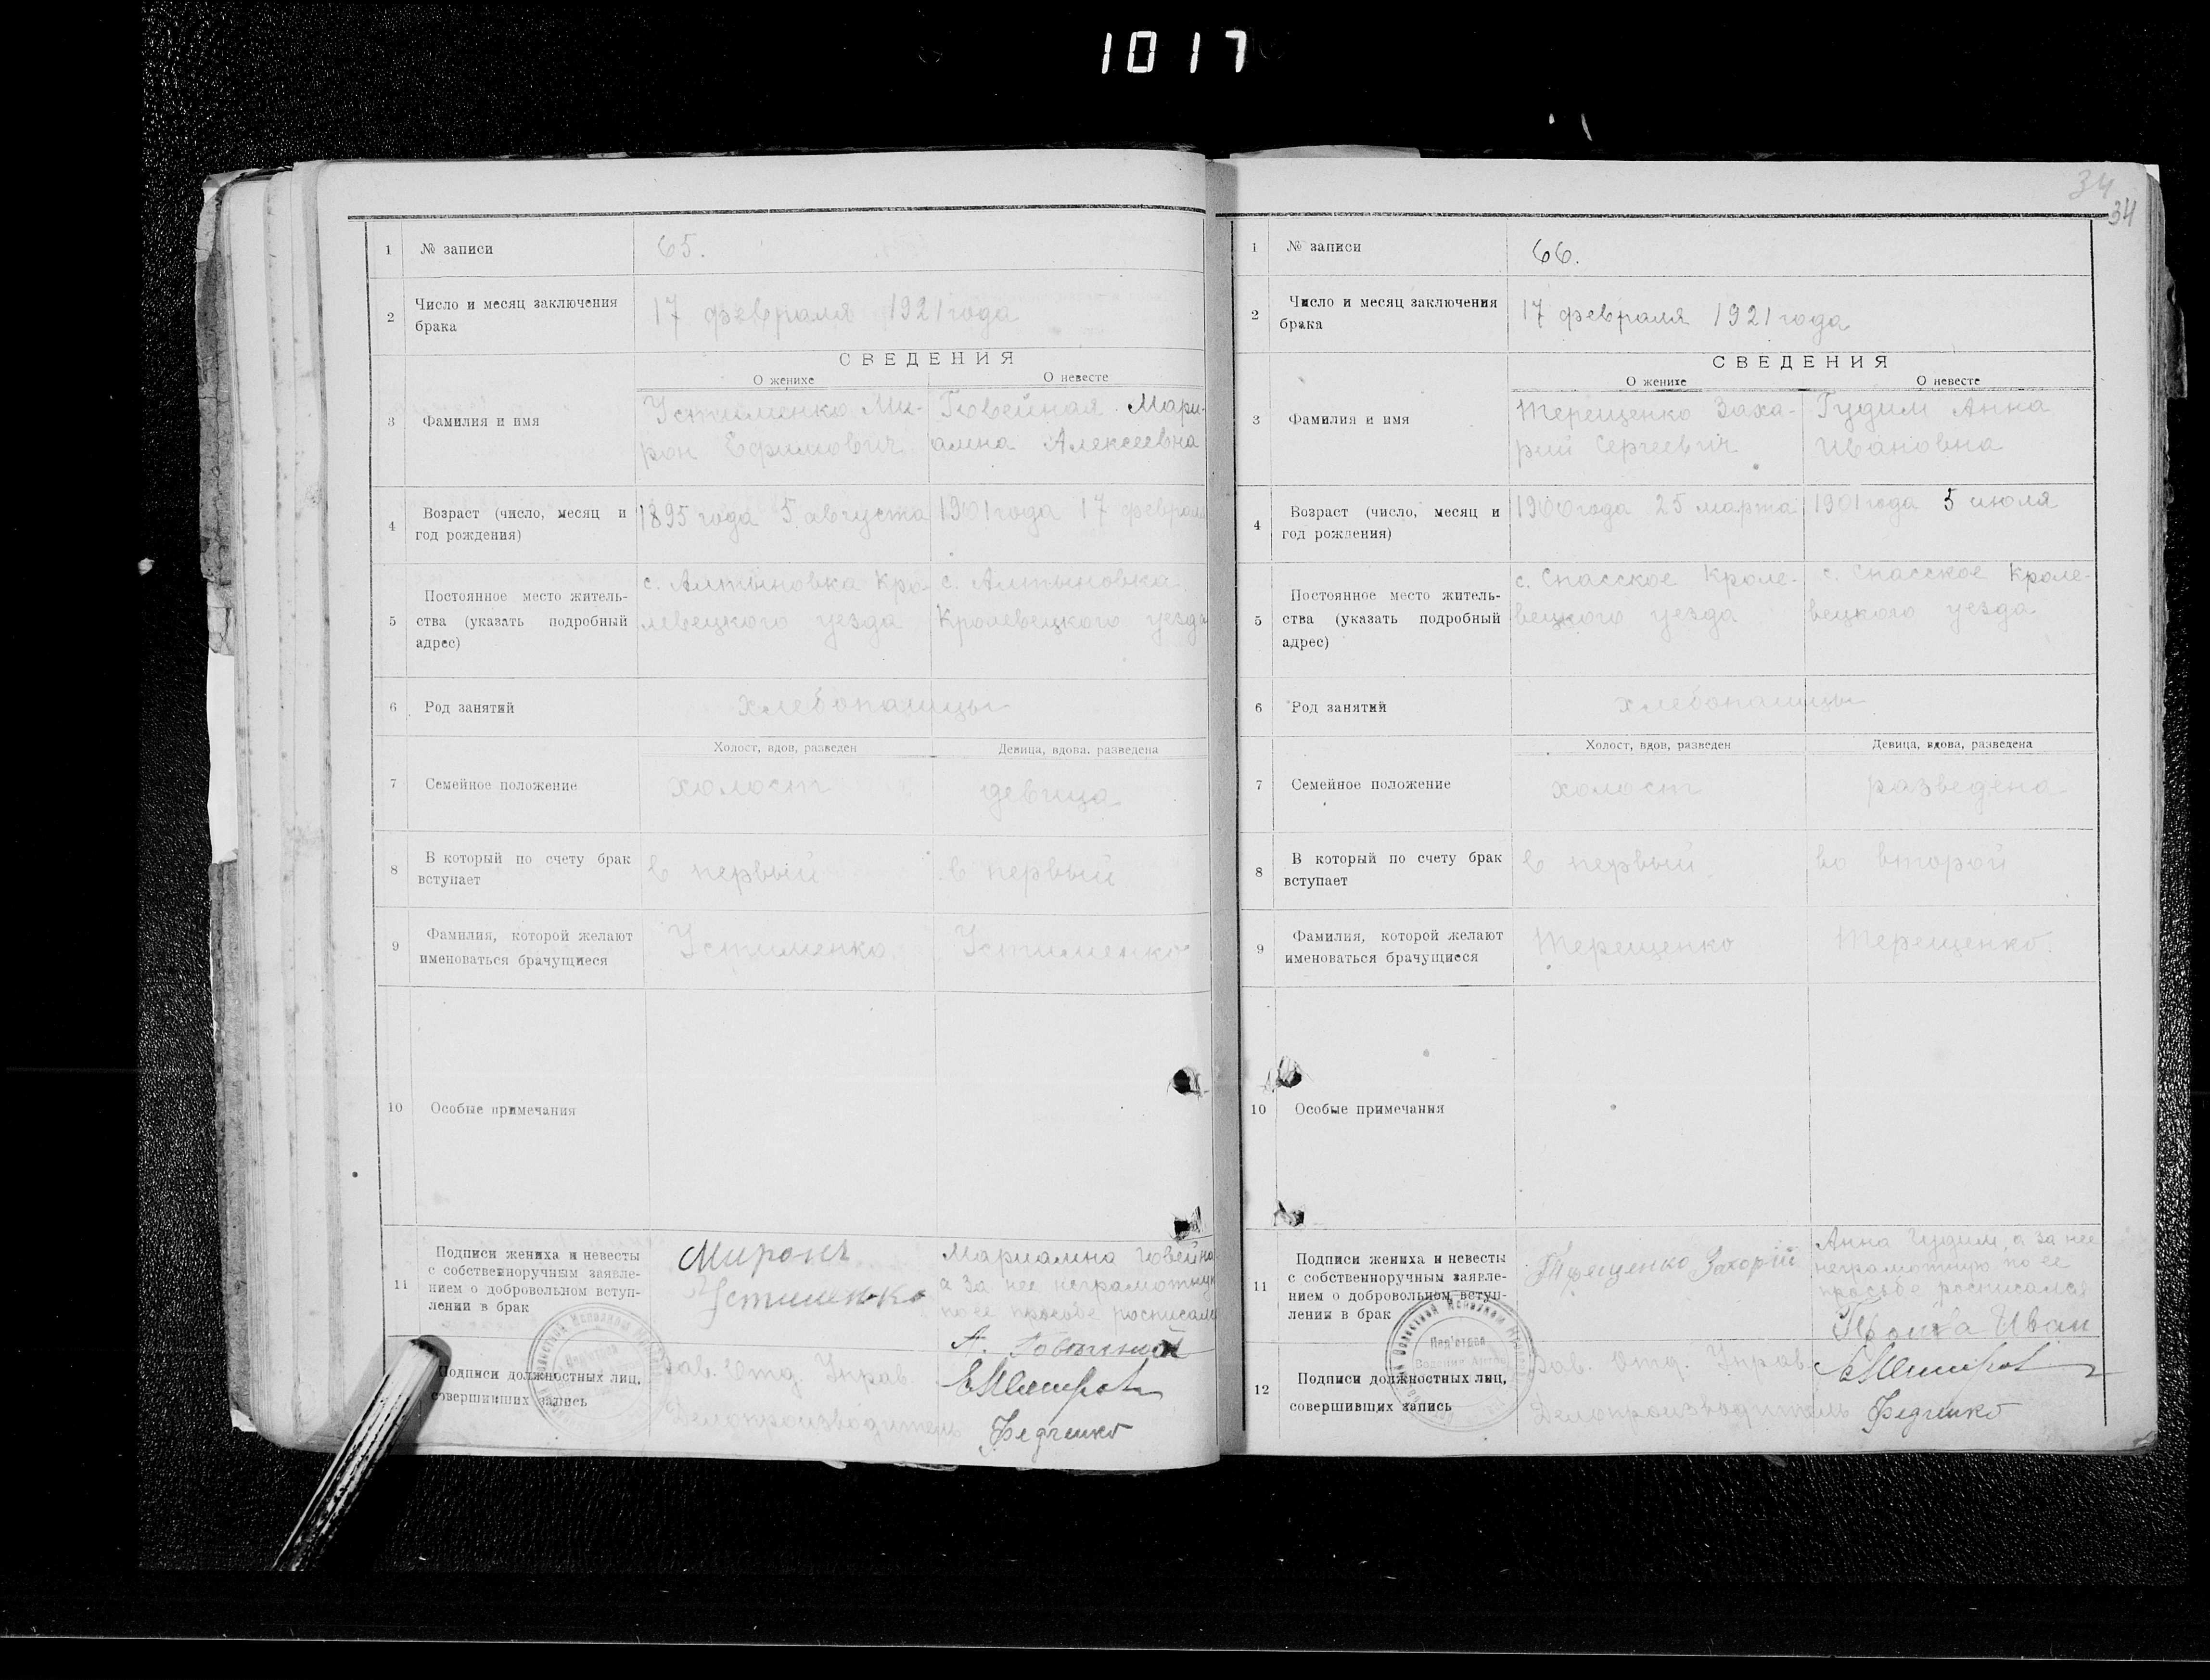 1017
1 № записи 65.
2 Число и месяц заключения брака 17 февраля 1921 года
СВЕДЕНИЯ
О женихе О невесте
3 Фамилия и имя
Устименко Ми- Говейная Мари-
рон Ефимович амна Алексеевна
4 Возраст (число, месяц и
год рождения)
1895 года 5 августа 1901 года 17 февраля
5 Постоянное место житель-
ства (указать подробный
адрес)
с. Алтыновка Кро- с. Алтыновка
левецкого уезда Кролевецкого уезда
6 Род занятий хлебопашцы
Холост, вдов, разведен Девица, вдова, разведена
7 Семейное положение холост девица
8 В который по счету брак
вступает
в первый в первый
9 Фамилия, которой желают
именоваться брачущиеся
Устименко Устименко
10 Особые примечания
11 Подписи жениха и невесты
с собственноручным заявле-
нием о добровольном вступ-
лении в брак
Миронъ
Устименко
Мариамна Говейна
а за нее неграмотную
по ее просьбе росписался
А.
Подписи должностных лиц,
совершивших запись
Зав. Отд. Управ.
Делопроизводитель Федченко
34
34
1 № записи 66.
2 Число и месяц заключения
брака
17 февраля 1921 года
СВЕДЕНИЯ
О женихе О невесте
3 Фамилия и имя
Терещенко Заха- Гудим Анна
рий Сергеевич Ивановна
4 Возраст (число, месяц и
год рождения)
1900 года 25 марта 1901 года 5 июля
5 Постоянное место житель-
ства (указать подробный
адрес)
с. Спасское Кроле- с. Спасское Кроле-
вецкого уезда вецкого уезда
6 Род занятий хлебопашцы
Холост, вдов, разведен Девица, вдова, разведена
7 Семейное положение холост разведена
8 В который по счету брак
вступает
в первый во второй
9 Фамилия, которой желают
именоваться брачущиеся
Терещенко Терещенко.
10 Особые примечания
11 Подписи жениха и невесты
с собственноручным заявле-
нием о добровольном вступ-
лении в брак
Терещенко Захорій
Анна Гудим, а за нее
неграмотную по ее
просьбе росписался
Иван
12 Подписи должностных лиц,
совершивших запись
Зав. Отд. Управ.
Делопроизводитель Федченко